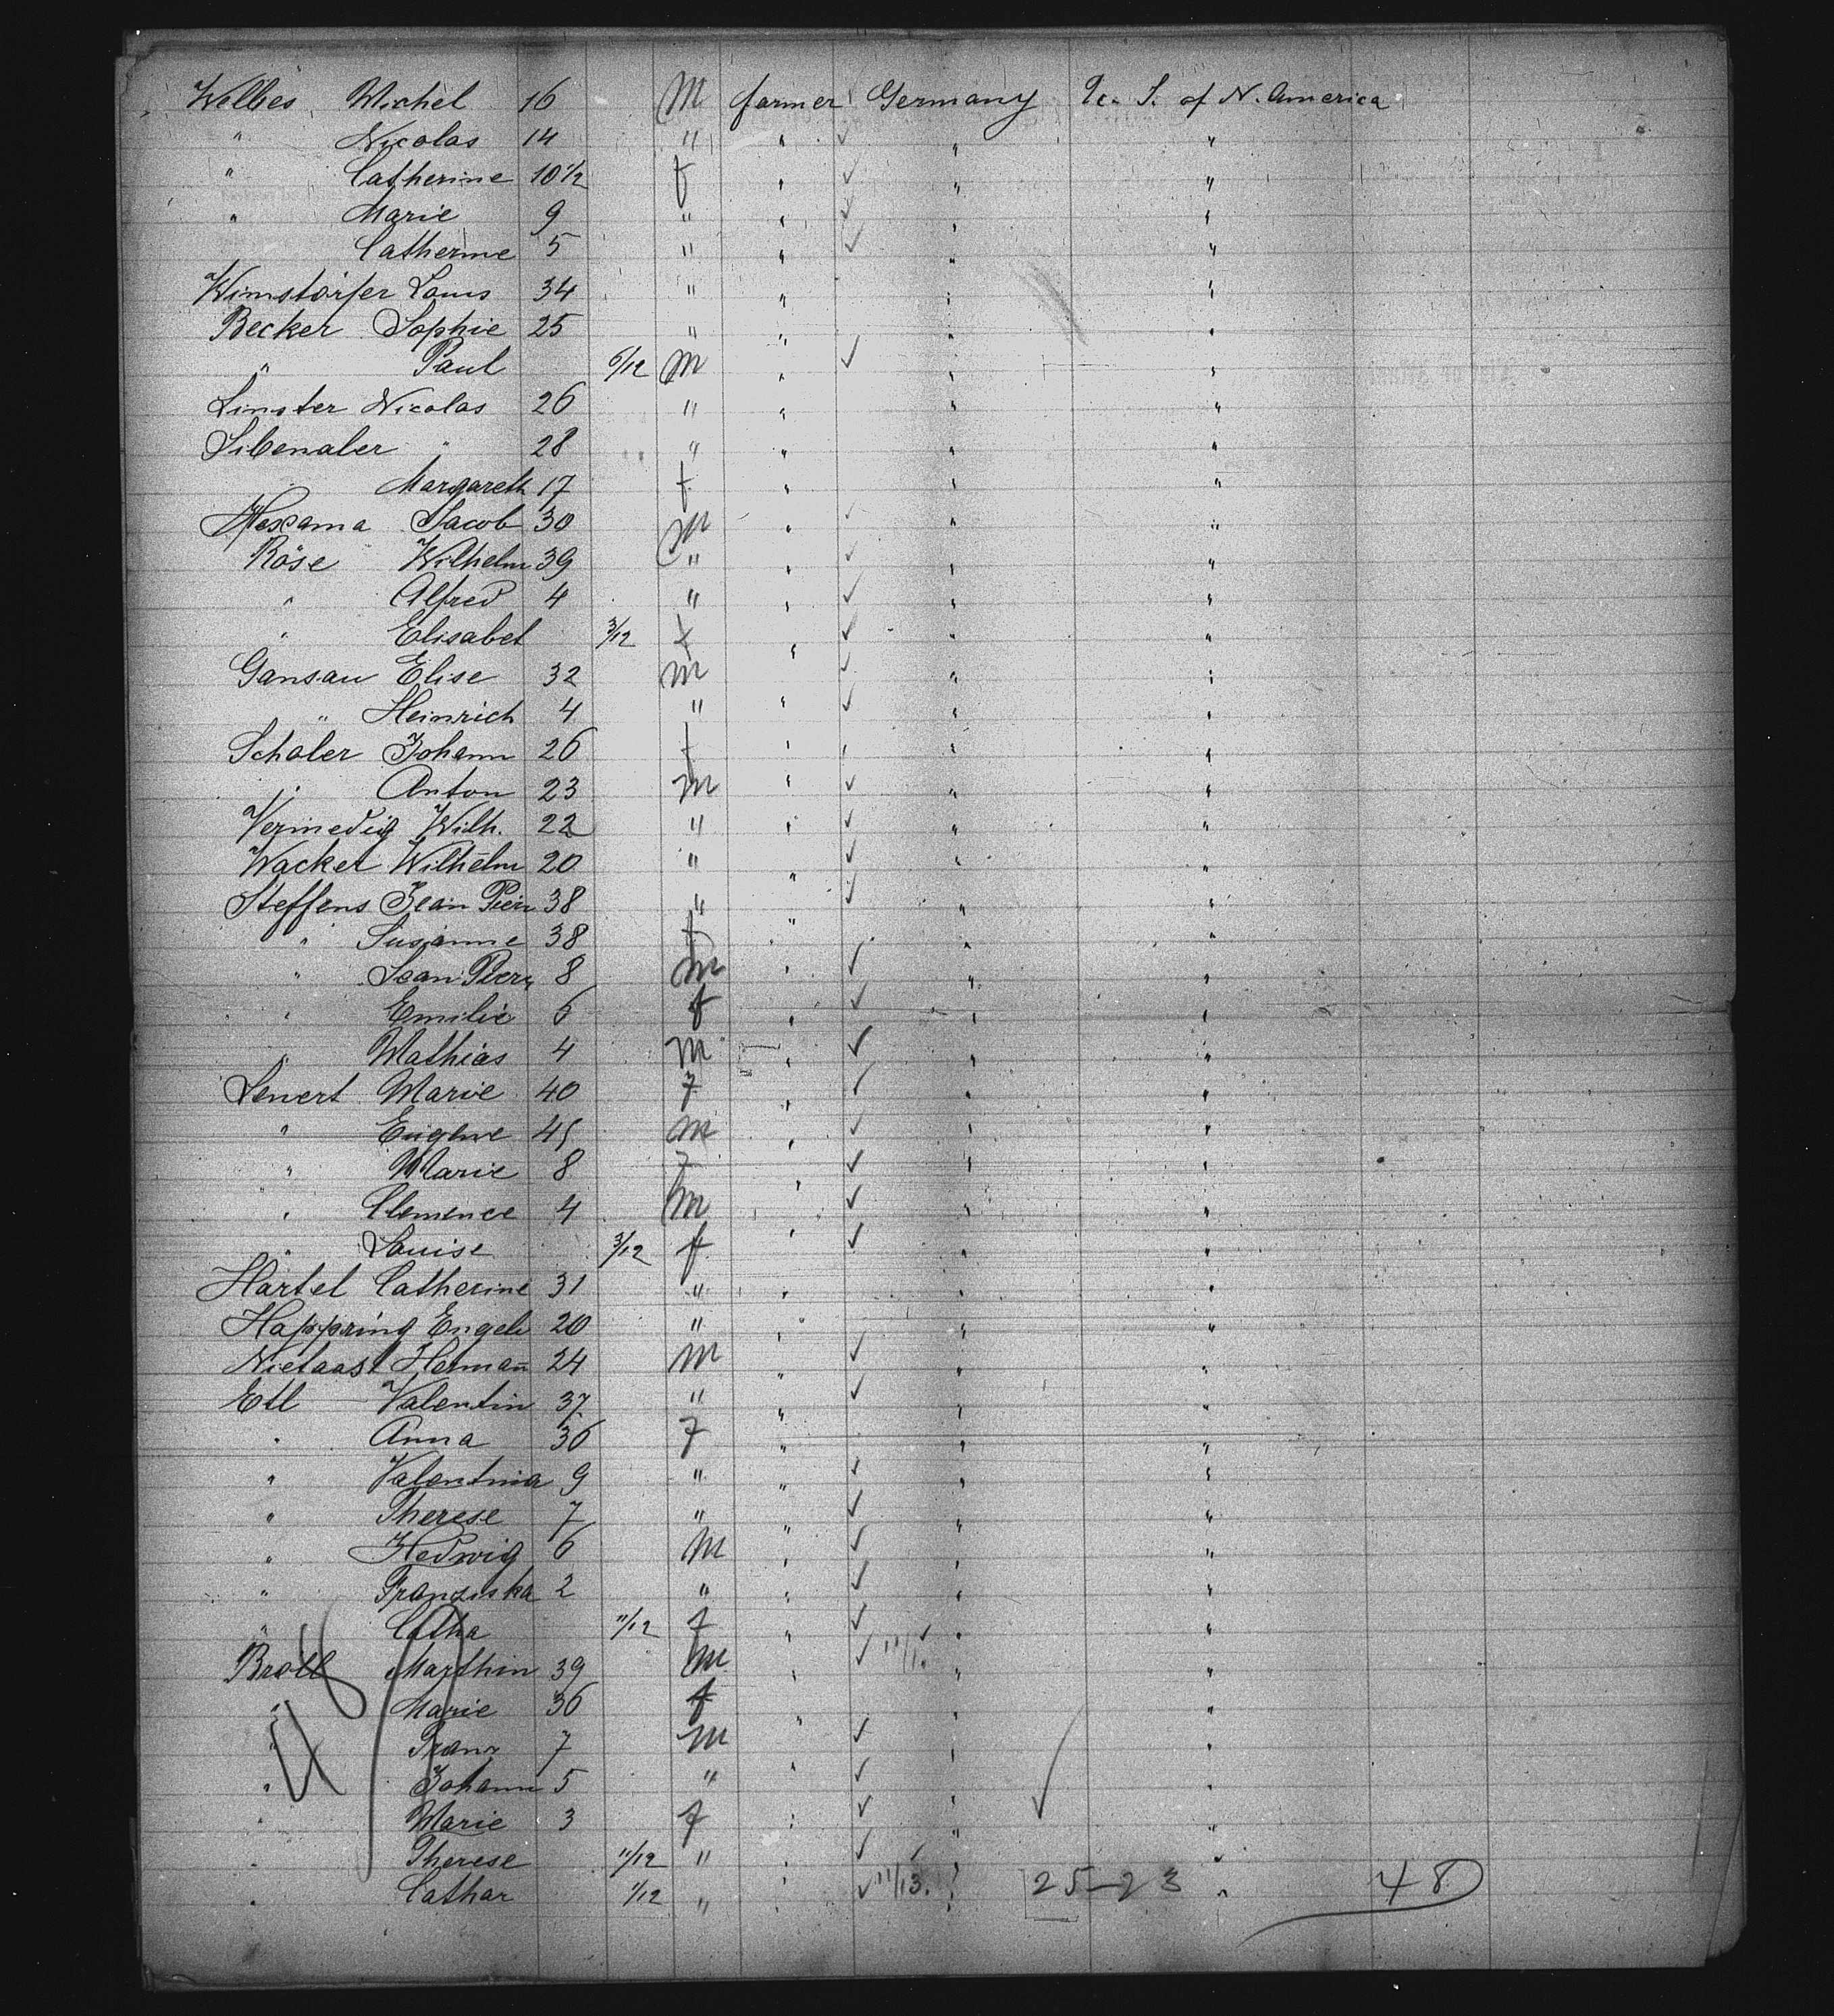 Welbes Michel 16 M farmer Germany U. S. of N. America
" Nicolas 14 " " " "
" Catherine 10 1/2 f " " "
" Marie 9 " " " "
Catherine 5 " " " "
Wimstörfer Louis 34 " " " "
Becker Sophie 25 " " " "
" Paul 6/12 M " " "
Linster Nicolas 26 " " " "
Sibenaler " 28 " " " "
Margareth 17 f " " "
Jacob 30 M " " "
Röse Wilhelm 39 " " " "
" Alfred 4 " " " "
" Elisabet 3/12 f " " "
Gansau Elise 32 M " "
" Heinrich 4 " " " "
Schaler Johann 26 f " " "
" Anton 23 M " " "
Vermedig Wilh. 22 " " " "
Wacket Wilhelm 20 " " " "
Steffens Jean Pierr 38 " " " "
" Susanne 38 f " " "
" Jean Pierr 8 M " " "
" Emilie 6 f " " "
" Mathias 4 M " " "
Lenert Marie 40 f " " "
" Eugene 45 M " " "
" Marie 8 f " " "
" Clemence 4 M " " "
" Louise 3/12 f " " "
Hartel Catherine 31 " " " "
Happring Engele 20 " " " "
Nietaast Herman̄ 24 M " " "
Etl Valentin 37 " " " "
" Anna 36 f " " "
" Valentina 9 " " " "
" Therese 7 " " " "
" Hedwig 6 M " " "
" Franziska 2 " " " "
" Catha 11/12 f " " "
Broll Marthin 39 M " 11/11. " "
" Marie 36 f " " "
" Franz 7 M " " "
" Johann 5 " " " "
" Marie 3 f " " "
" Therese 11/12 " " " "
" Cathar 1/12 " " 11/13. " 25-23 " 48
48